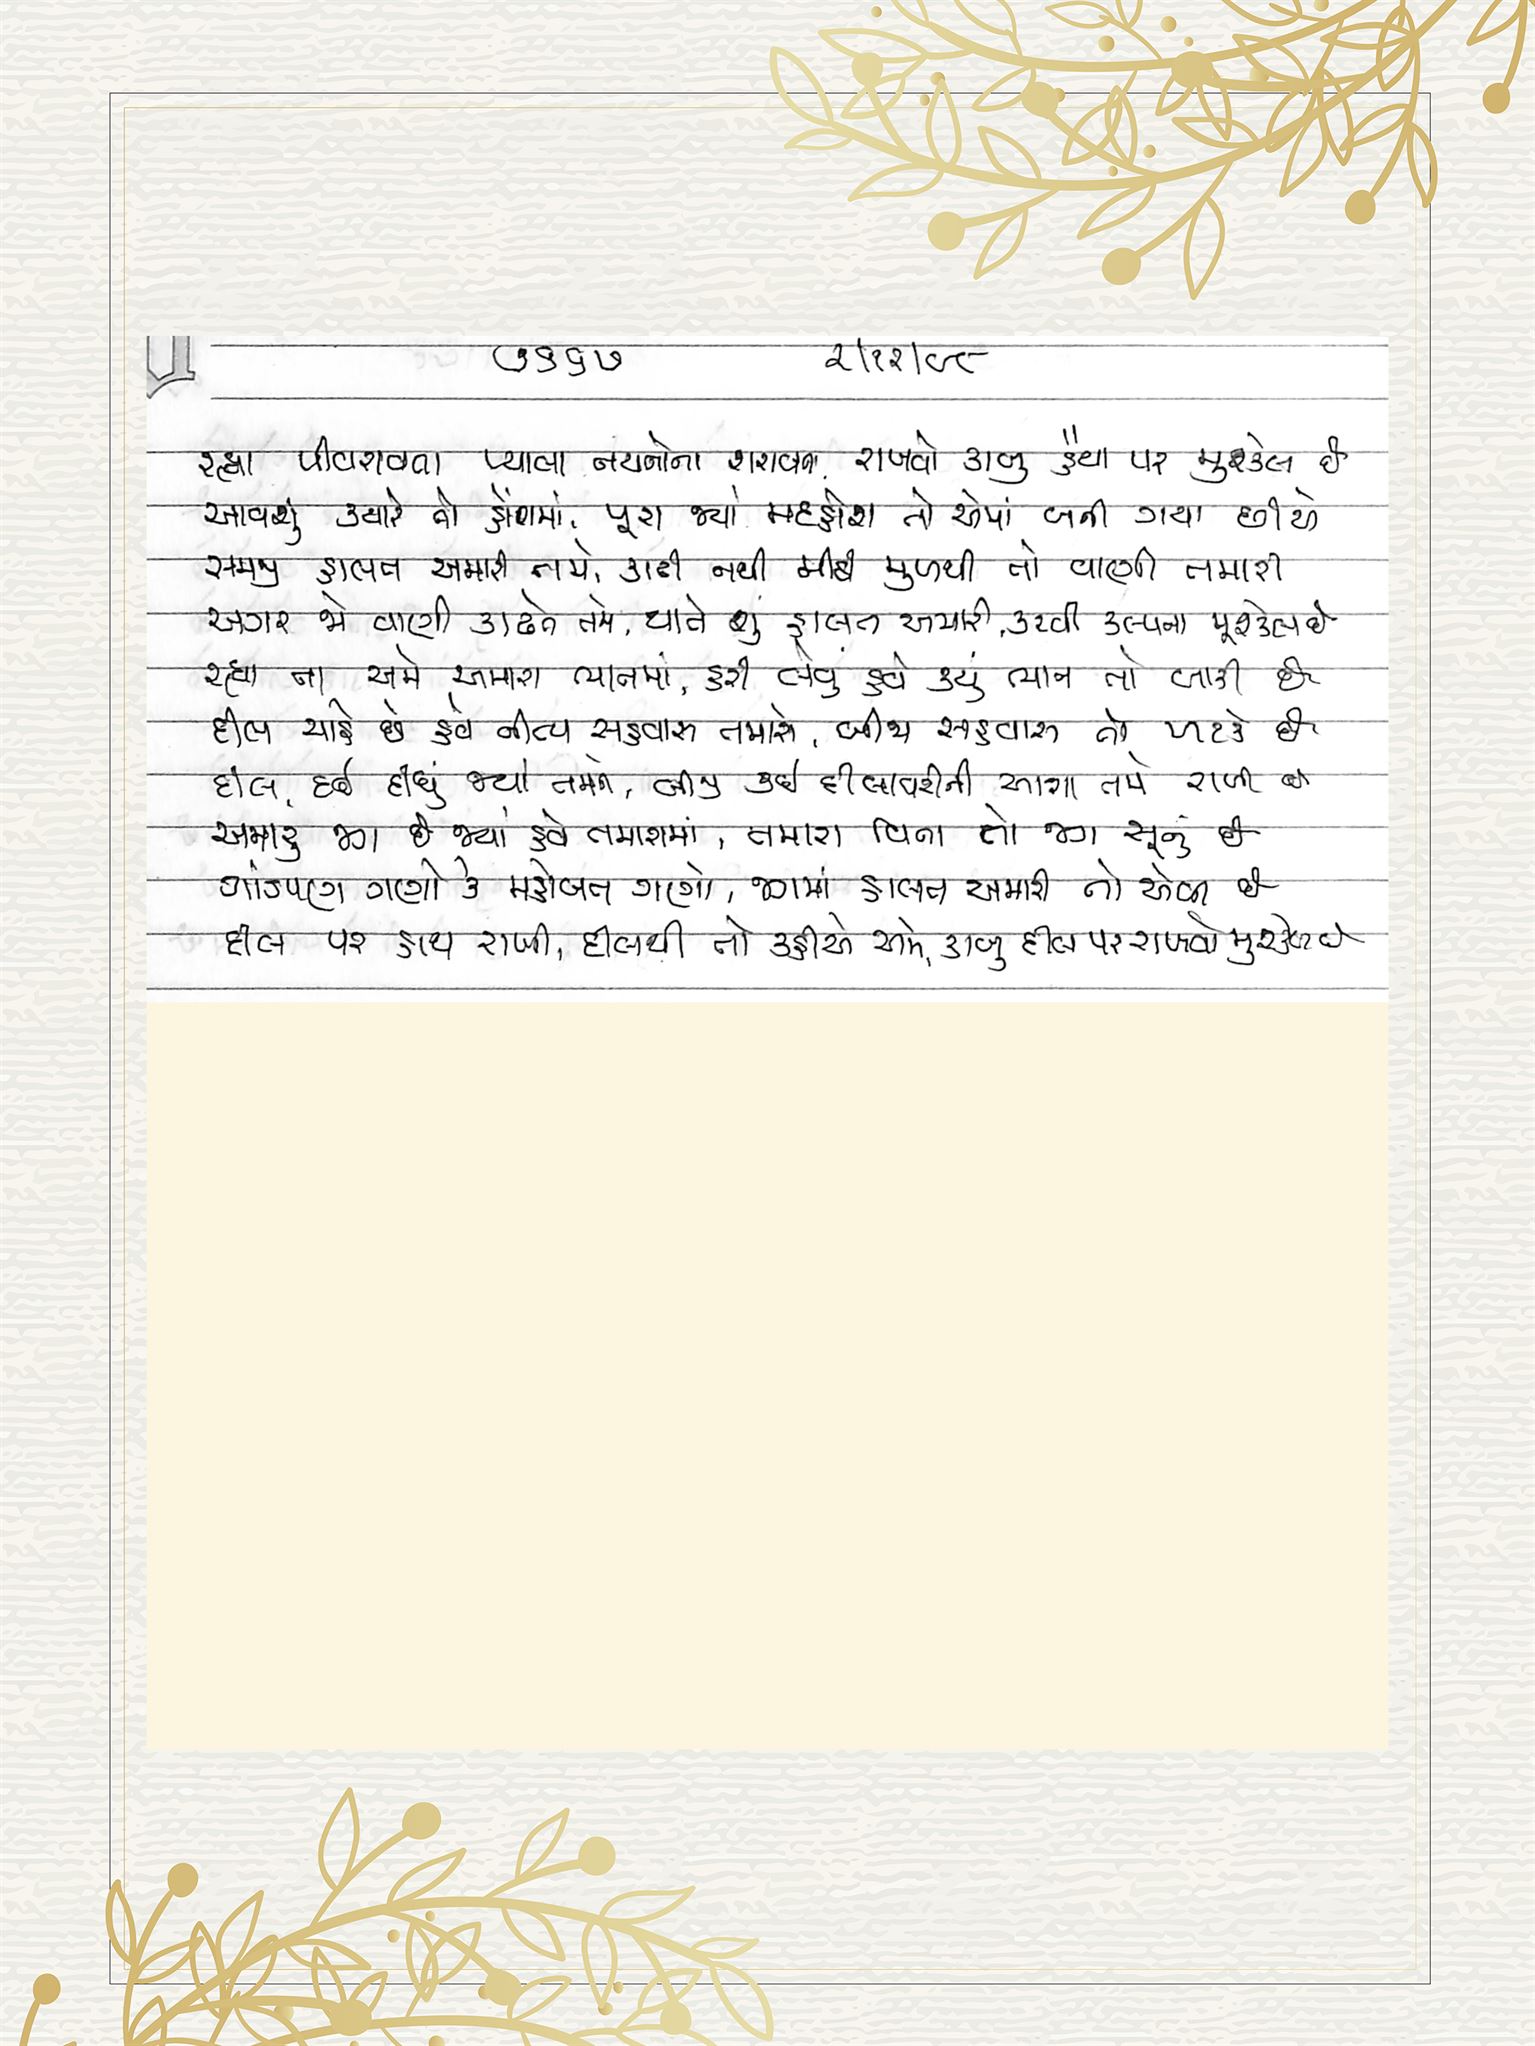 ૭૬૬૭ ૨/૧૨/૯૮
રહ્યા પીવરાવતા પ્યાલા નયનોના શરાબના, રાખવો કાબુ હૈયા પર મુશ્કેલ છે
આવશું ક્યારે તો હોંશમાં, પૂરા જ્યાં મદહોશ તો એમાં બની ગયા છીએ
સમજી હાલત અમારી તમે, કાઢી નથી મીઠી મુખથી તો વાણી તમારી
અગર જો વાણી કાઢતે તમે, થાતે શું હાલત અમારી, કરવી કલ્પના મૂશ્કેલ છે
રહ્યા ના અમે અમારા ભાનમાં, કરી લેવું હવે કયું ભાન તો બાકી છે
દીલ ચાહે છે હવે નીત્ય સહવાસ તમારો, બીજા સહવાસ તો ખટકે છે
દીલ દઈ દીધું જ્યાં તમને, બીજી કઈ દીલાવરીની આશા તમે રાખી છે
અમારું જગ છે જ્યાં હવે તમારામાં, તમારા વિના તો જગ સૂનું છે
ગાંડપણ ગણો કે મહોબત ગણો, જગમાં હાલત અમારી તો એવી છે
દીલ પર હાથ રાખી, દીલથી તો કહીએ અમે, કાબુ દીલ પર રાખવો મુશ્કેલ છે